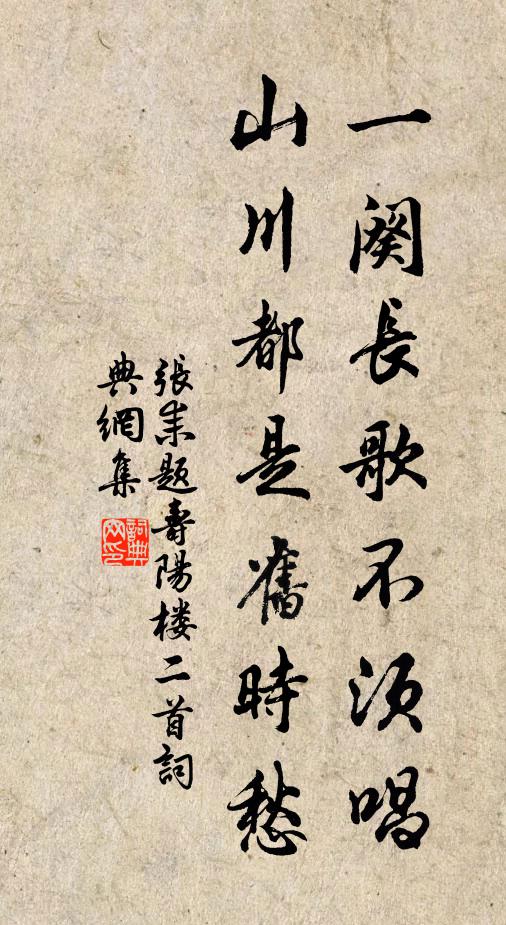 一阕長歌不须唱
山川都是舊時愁
張耒题壽陽楼二首詞
典網集
詞典网印